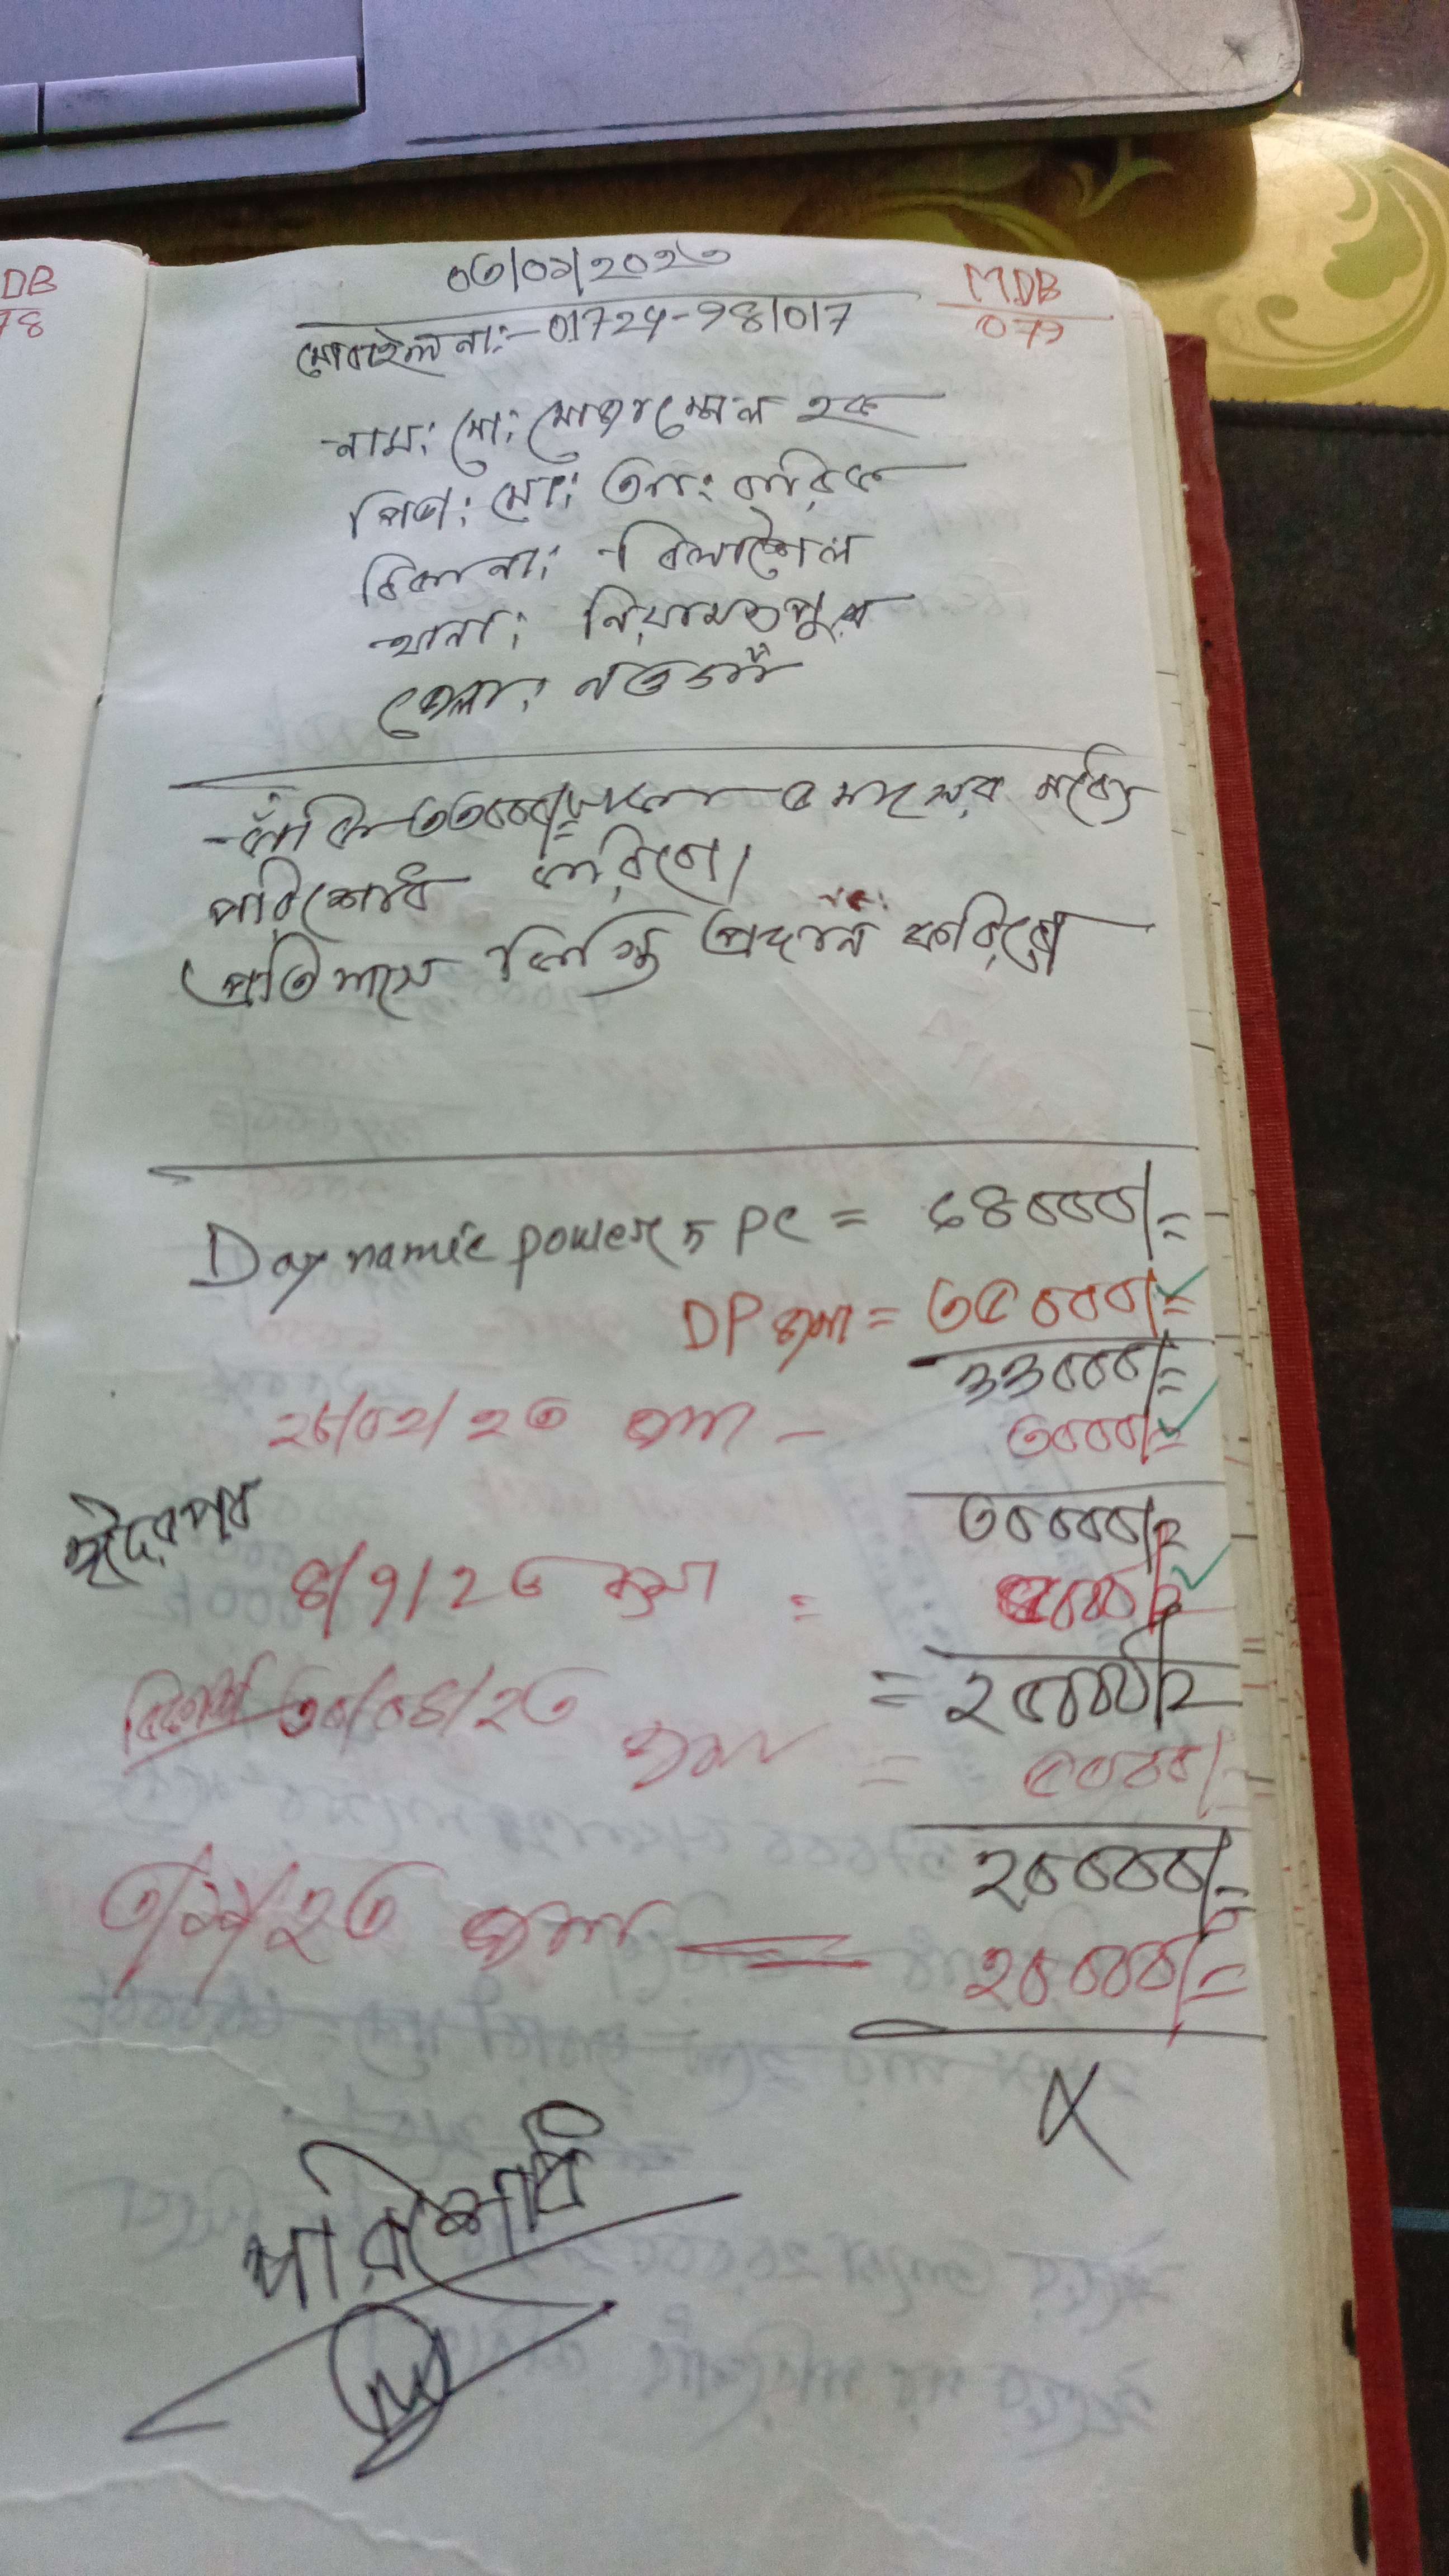 DB
78
০৩/০১/২০২৩
MDB
079
মোবাইল নাং:-01724-981017
নাম: মো: মোজাম্মেল হক
পিতা: মো: তনং বারিক
ঠিকানা:
থানা: নিয়ামতপুর
জেলা: নওগাঁ
বাঁকি ৩৩০০০/= টাকা ৫ মাসের মধ্যে
পরিশোধ করিবে।
প্রতি মাসে কিস্তি প্রদান করিবে
Daynamic power 5 PC = ৬৪০০০/=
DP জমা = ৩৫০০০/=
33০০০/=
২৮/০২/২৩ জমা - ৩০০০/=
৩০০০০/=
ঈদের পর
৪/৭/২৩ জমা = ৫০০০/=
= ২৫০০০/=
বিকাশ ৩০/০৪/২৩ জমা = ৫০০০/=
২০০০০/=
৩/১১/২৩ জমা = ২০০০০/=
X
পরিশোধ